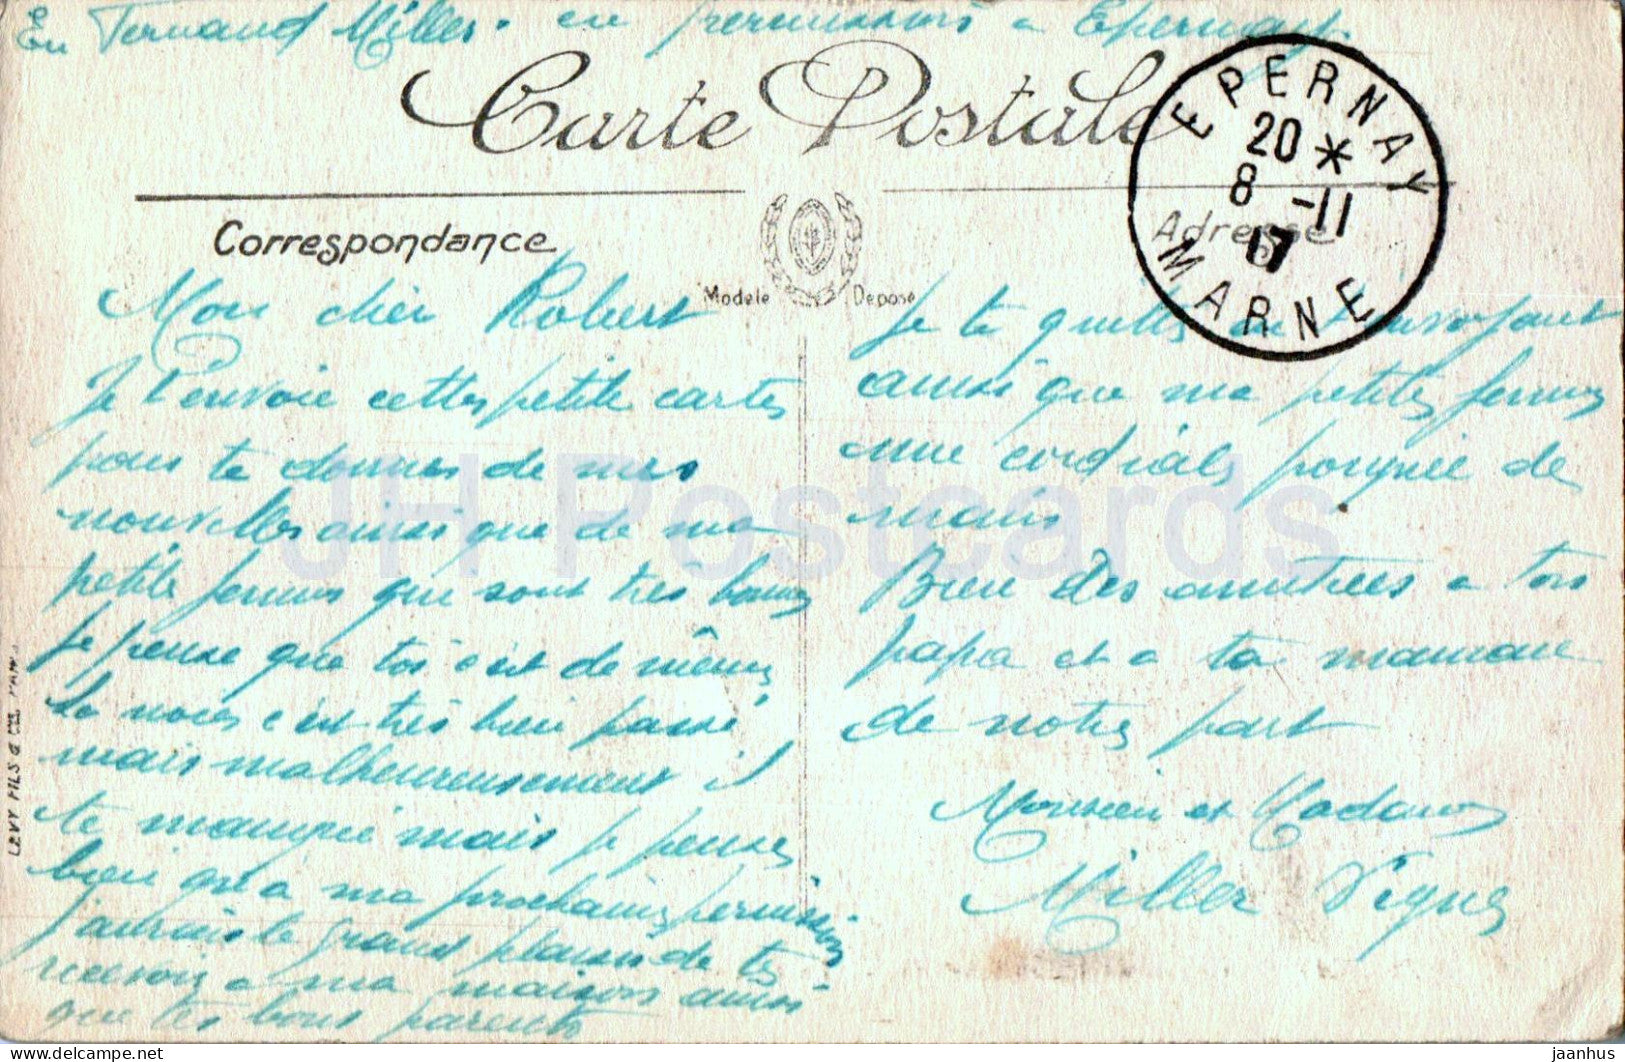 Ex Fernand Miller. en permissions a Epernay.
Carte Postale
EPERNAY
20 *
8 -11
17
MARNE
Correspondance
Adresse
Modele Depose
Mon cher Robert
Je t'envoie cettes petite cartes
pour te donnes de mes
nouvelles ainsi que de ma
petite femmes que sont très bonnes
je pense que toi c'est de mêmes
La noces c'est très bien passé
mais malheureusement il
te manqué mais je penses
bien qu'a ma prochaines permissions
j'aurais le grand plaisir de te
recevoir a ma maisons ainsi
que tes bons parents
Je te quittes en t'envoyant
ainsi que ma petites femmes
une cordiale poignée de
mains
Bien des amitiées a ton
papa et a ta maman
de notre part
Monsieur et Madames
Miller Vegne
LEVY FILS & CIE. PARIS
JH Postcards
www.delcampe.net
jaanhus